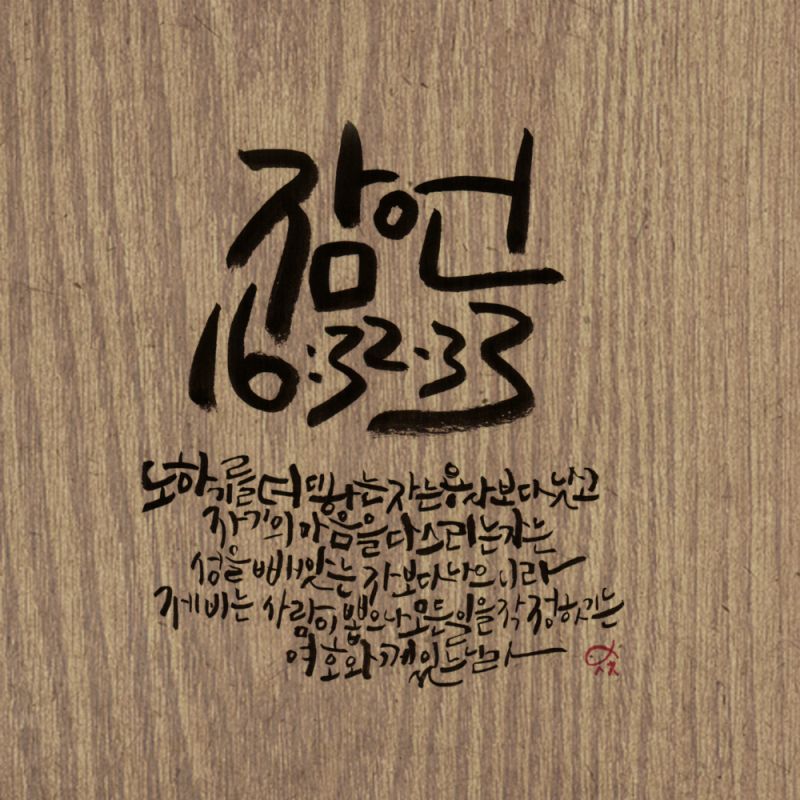 잠언
16:32-33
노하기를 더디하는 자는 용사보다 낫고
자기의 마음을 다스리는 자는
성을 빼앗는 자보다 나으니라
제비는 사람이 뽑으나 모든 일을 작정하기는
여호와께 있느니라